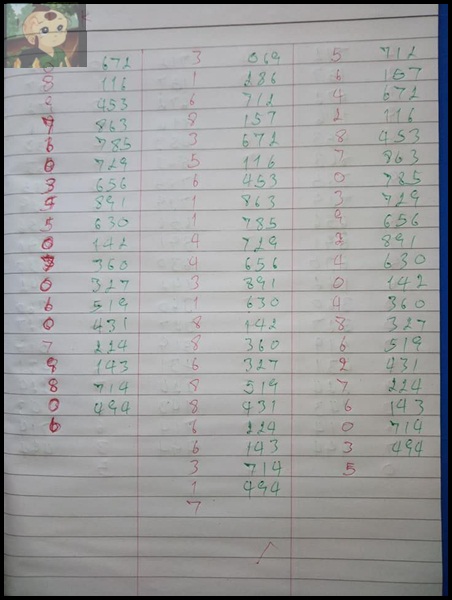 672 3 069 5 712
8 116 1 286 6 157
9 453 6 712 4 672
7 863 8 157 2 116
6 785 3 672 8 453
0 729 5 116 7 863
3 656 6 453 0 785
4 891 1 863 3 729
5 630 1 785 9 656
0 142 4 729 2 891
3 360 4 656 4 630
0 327 3 891 0 142
6 519 1 630 4 360
0 431 8 142 8 327
7 224 8 360 6 519
9 143 6 327 2 431
8 714 8 519 7 224
0 494 8 431 6 143
6 6 224 0 714
6 143 3 494
3 714 5
1 494
7